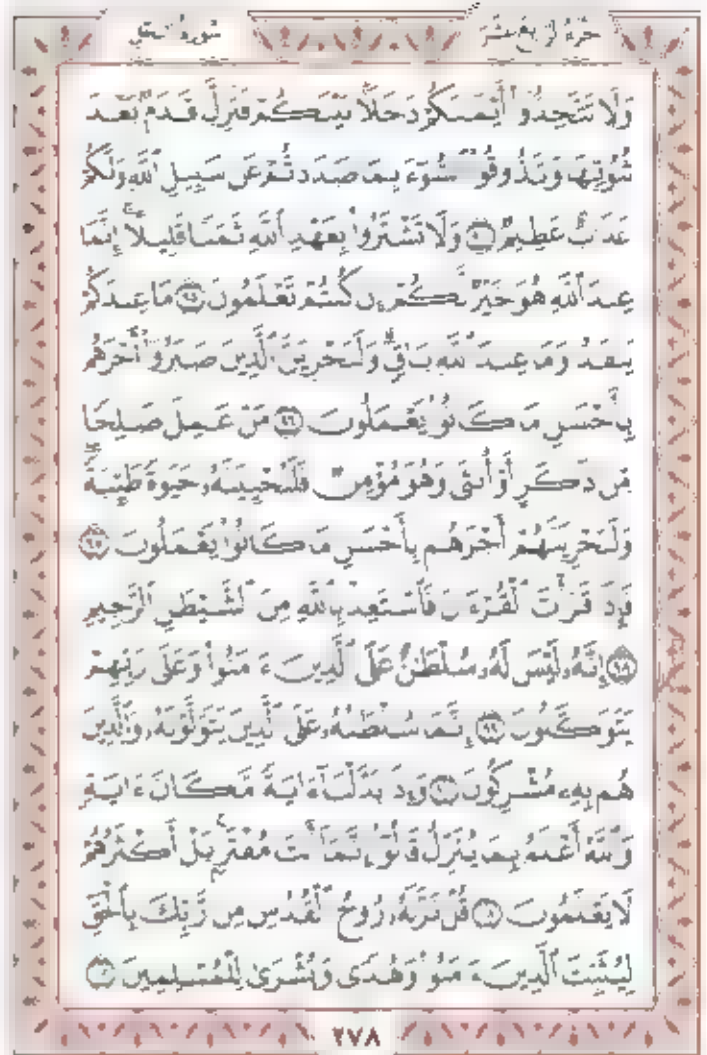 سورة النحل الجزء الرابع عشر
وَلَا تَتَّخِذُوٓا۟ أَيْمَٰنَكُمْ دَخَلًۢا بَيْنَكُمْ فَتَزِلَّ قَدَمٌۢ بَعْدَ
ثُبُوتِهَا وَتَذُوقُوا۟ ٱلسُّوٓءَ بِمَا صَدَدتُّمْ عَن سَبِيلِ ٱللَّهِ وَلَكُمْ
عَذَابٌ عَظِيمٌ ٩٤ وَلَا تَشْتَرُوا۟ بِعَهْدِ ٱللَّهِ ثَمَنًا قَلِيلًا إِنَّمَا
عِندَ ٱللَّهِ هُوَ خَيْرٌ لَّكُمْ إِن كُنتُمْ تَعْلَمُونَ ٩٥ مَا عِندَكُمْ
يَنفَدُ وَمَا عِندَ ٱللَّهِ بَاقٍ وَلَنَجْزِيَنَّ ٱلَّذِينَ صَبَرُوٓا۟ أَجْرَهُم
بِأَحْسَنِ مَا كَانُوا۟ يَعْمَلُونَ ٩٦ مَنْ عَمِلَ صَٰلِحًا
مِّن ذَكَرٍ أَوْ أُنثَىٰ وَهُوَ مُؤْمِنٌ فَلَنُحْيِيَنَّهُۥ حَيَوٰةً طَيِّبَةً
وَلَنَجْزِيَنَّهُمْ أَجْرَهُم بِأَحْسَنِ مَا كَانُوا۟ يَعْمَلُونَ ٩٧
فَإِذَا قَرَأْتَ ٱلْقُرْءَانَ فَٱسْتَعِذْ بِٱللَّهِ مِنَ ٱلشَّيْطَٰنِ ٱلرَّجِيمِ
٩٨ إِنَّهُۥ لَيْسَ لَهُۥ سُلْطَٰنٌ عَلَى ٱلَّذِينَ ءَامَنُوا۟ وَعَلَىٰ رَبِّهِمْ
يَتَوَكَّلُونَ ٩٩ إِنَّمَا سُلْطَٰنُهُۥ عَلَى ٱلَّذِينَ يَتَوَلَّوْنَهُۥ وَٱلَّذِينَ
هُم بِهِۦ مُشْرِكُونَ ١٠٠ وَإِذَا بَدَّلْنَآ ءَايَةً مَّكَانَ ءَايَةٍ
وَٱللَّهُ أَعْلَمُ بِمَا يُنَزِّلُ قَالُوٓا۟ إِنَّمَآ أَنتَ مُفْتَرٍۭ بَلْ أَكْثَرُهُمْ
لَا يَعْلَمُونَ ١٠١ قُلْ نَزَّلَهُۥ رُوحُ ٱلْقُدُسِ مِن رَّبِّكَ بِٱلْحَقِّ
لِيُثَبِّتَ ٱلَّذِينَ ءَامَنُوا۟ وَهُدًى وَبُشْرَىٰ لِلْمُسْلِمِينَ ١٠٢
٢٧٨